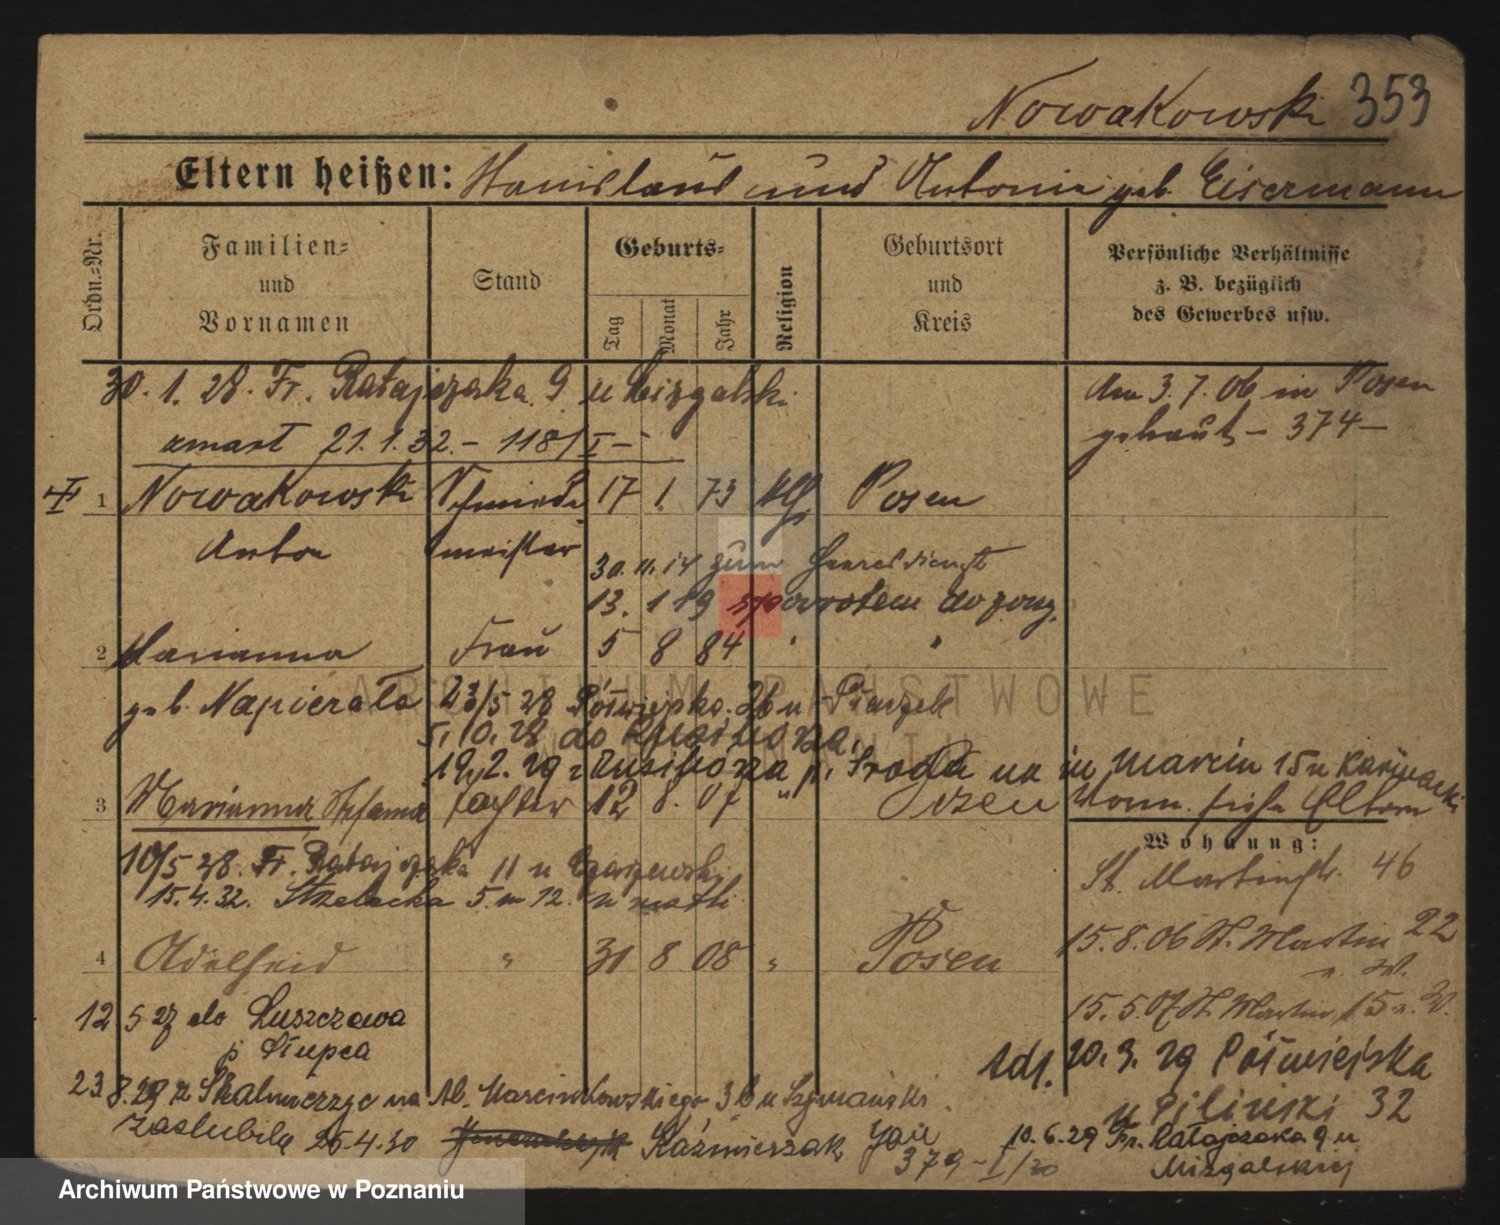 Nowakowski 353
Eltern heißen: Stanislaus und Antonie geb. Eisermann
Ordn.=Nr.
Familien=
und
Vornamen
Stand
Geburts=
Tag
Monat
Jahr
Religion
Geburtsort
und
Kreis
Persönliche Verhältnisse
z. B. bezüglich
des Gewerbes usw.
30. 1. 28. Fr. Ratajczaka 9 u Mizgalski
Am 3. 7. 06 in Posen
zmarł 21. 1. 32. – 118/I –
getraut – 374 –
1 Nowakowski Schmiede 17 1. 73 kth Posen
Anton meister
30. 11. 14 zum Heeresdienst
13. 1 19 spowrotem do
2 Marianna Frau 5 8 84 " "
geb. Napierała 23/5 28 Półwiejska 26 u
5. 10. 28 do
19. 2. 29 z p. Środa na św Marcin 15 u
3 Marianna Stefania Tochter 12 8. 07 " Posen
Wohnung:
10/5 28. Fr. Ratajczaka 11 u
St. Martinstr. 46
15. 4. 32. Strzelecka 5. m 12. u matki
15. 8. 06 St. Martin 22
4 Adelheid " 31 8 08 " Posen
12 5 27 do Łuszczewa
p Słupca
15. 5. 07 St. Martin 15
Adr. 20. 3. 29 Półwiejska
23 8. 29 z Skalmierzyc na Al. Marcinkowskiego 3b u Szymański
u Piliński 32
zaślubiła 26. 4. 30 Kaźmierczak
10. 6. 29 Fr. Ratajczaka 9 u
379 – I/30
Mizgalskiej
ARCHIWUM PAŃSTWOWE
W POZNANIU
Archiwum Państwowe w Poznaniu